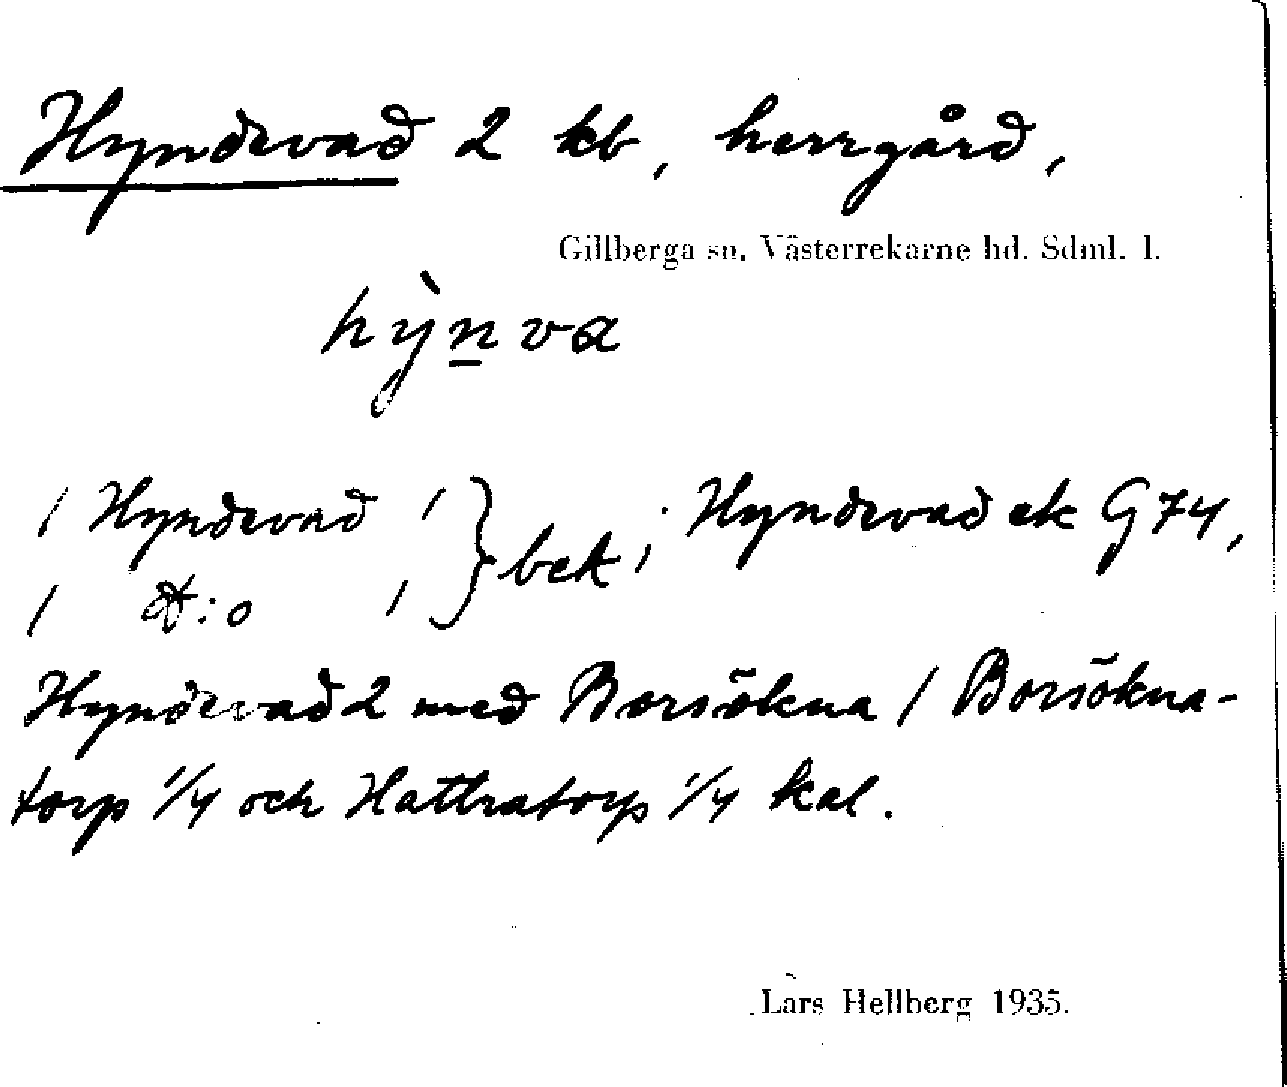 Hyndevad 2 kb, herrgård,
Gillberga sn. Västerrekarne hd. Sdml. l.
hy̋nva
/ Hyndevad / } bek; Hyndevad ek G 74,
/ D:o /
Hyndevad 2 med Borsökna / Borsökna-
torp 1/4 och Hattratorp 1/4 kal.
Lars Hellberg 1935.